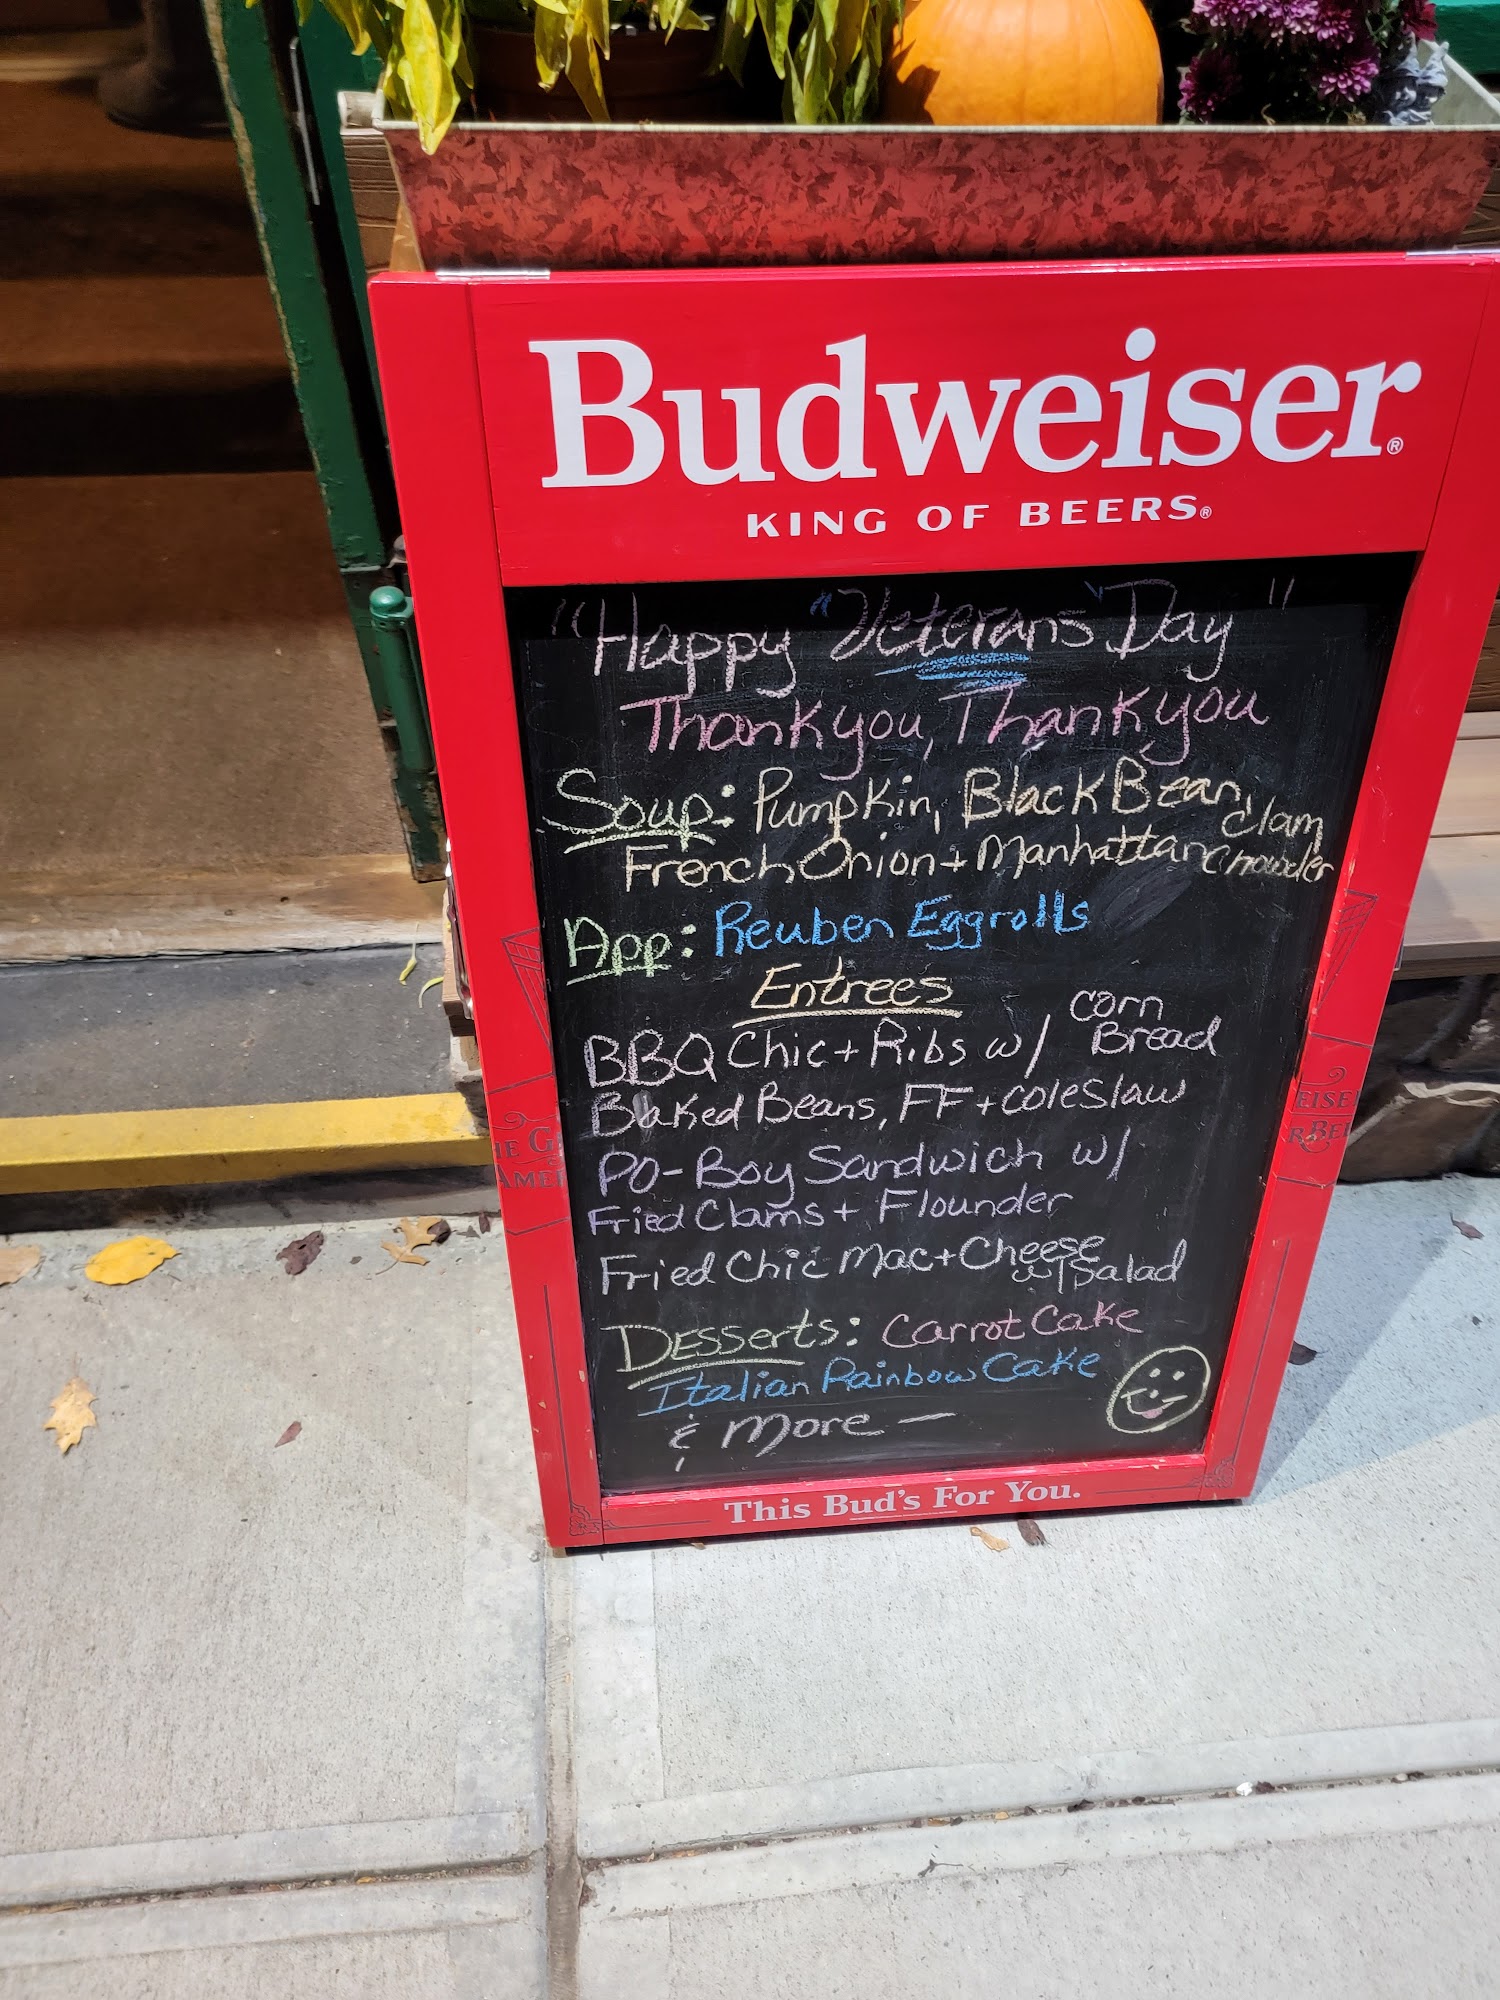 Budweiser®
KING OF BEERS®
"Happy "Veterans" Day"
Thank you, Thank you
Soup: Pumpkin, Black Bean,
French Onion + Manhattan Clam Chowder
App: Reuben Eggrolls
Entrees
BBQ Chic + Ribs w/ Corn Bread
Baked Beans, FF + coleslaw
Po-Boy Sandwich w/
Fried Clams + Flounder
Fried Chic Mac + Cheese
w/ Salad
Desserts: Carrot Cake
Italian Rainbow Cake
& More —
This Bud's For You.